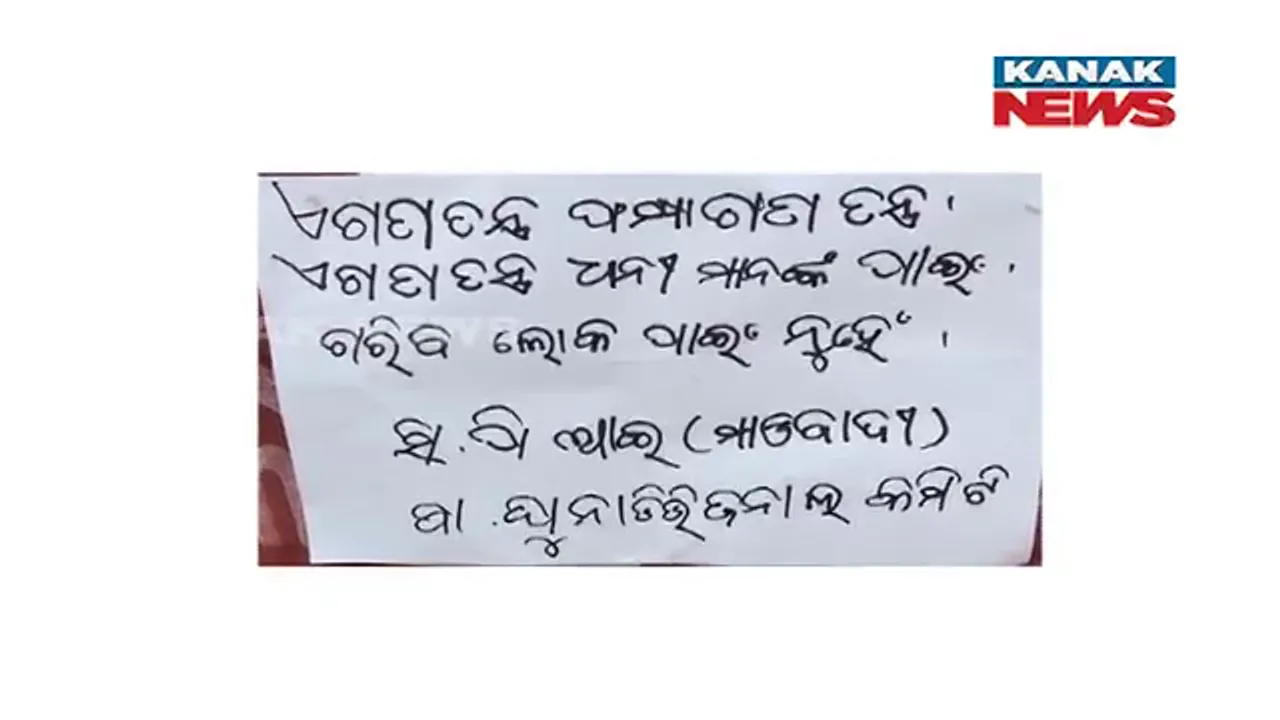 KANAK
NEWS
ଏଗଣତନ୍ତ୍ର ଫମ୍ପାଗଣ ତନ୍ତ୍ର ।
ଏଗଣତନ୍ତ୍ର ଧନୀ ମାନଙ୍କେ ପାଇଂ ।
ଗରିବ ଲୋକ ପାଇଂ ନୁହେଁ ।
ସି.ପି ଆଇ (ମାଓବାଦୀ)
କମିଟି